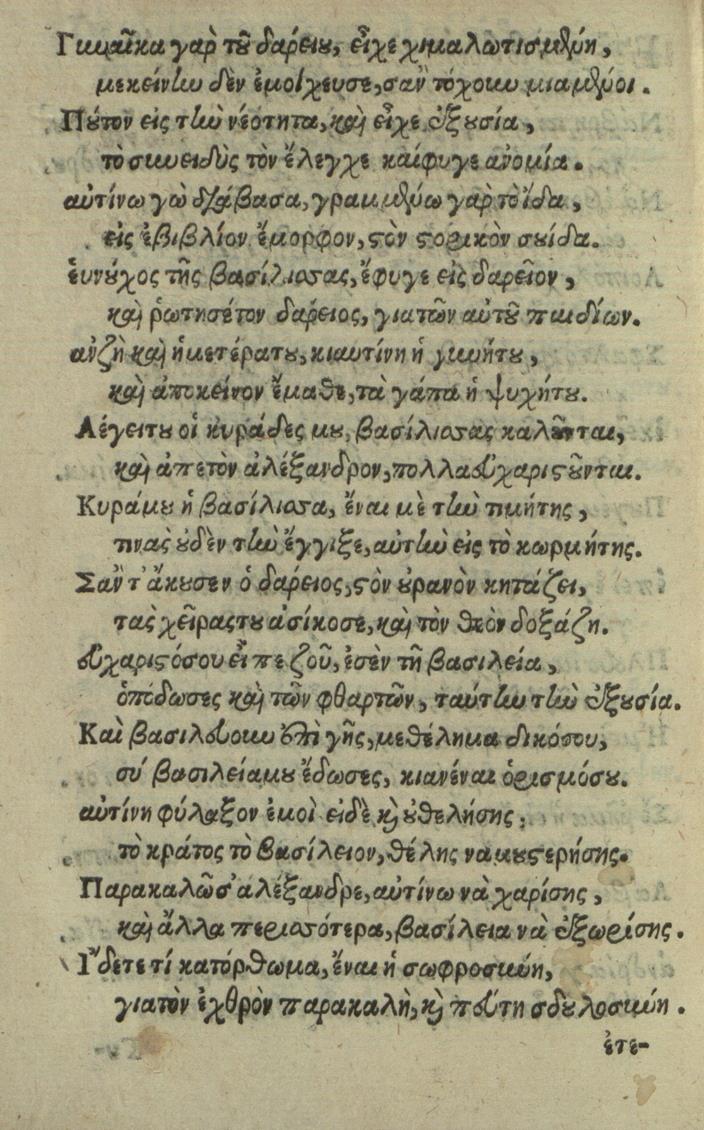 Γυναῖκα γαρ τοῦ δαρείου, εἶχε χιμαλωτισμένη,
μεκείνην δὲν ἐμοίχευσε, σαν τόχουν μιαμένοι.
Πούτον εις τὴν νέοτητα, καὶ εἶχε ἐξουσία,
τὸ συνειδὸς τὸν ἔλεγχε καίφυγε ανομία.
αὐτίνω γὼ διάβασα, γραμμένω γαρ τὸ ἶδα,
εἰς ἐβιβλίον ἔμορφον, στὸν στορικὸν σουίδα.
ἑυνούχος τῆς βασίλιοσας, ἔφυγε εἰς δαρεῖον,
καὶ ῥωτησέτον δαρειος, γιατῶν αὐτοῦ παιδίων.
ανζὴ καὶ ἡμετέρατου, κιαυτίνη ἡ γυνήτου,
καὶ ἀποκείνον ἔμαθε, τὰ γάπα ἡ ψυχήτου.
Λέγειτου οἱ κυράδες μου, βασίλιοσας καλοῦνται,
καὶ ἀπετὸν ἀλέξανδρον, πολλα ευχαριστοῦνται.
Κυράμου ἡ βασίλιοσα, ἔναι μὲ τὴν τιμήτης,
τινας οὐδὲν τὴν ἔγγιξε, αὐτὴν εἰς τὸ κωρμήτης.
Σαν τ' ἄκουσεν ὁ δαρειος, στὸν οὐρανὸν κητάζει,
τας χεῖραςτου ασίκοσε, καὶ τὸν θεὸν δοξάζη.
ευχαριστόσου εἶπε ζοῦ, ἐσὲν τῆ βασιλεία,
ὁπέδωσες καὶ τῶν φθαρτῶν, ταύτην τὴν ἐξουσία.
Καὶ βασιλεύουν ἐπὶ γῆς, μεθέλημα δικόσου,
σύ βασιλείαμου ἔδωσες, κιανέναι ὁρισμόσου.
αὐτίνη φύλαξον ἐμοὶ εἰδὲ καὶ οὐθελήσης,
τὸ κράτος τὸ βασίλειον, θέλης ναμουστερήσης.
Παρακαλῶσ' αλέξανδρε, αὐτίνω νὰ χαρίσης,
καὶ ἄλλα περιοσότερα, βασίλεια νὰ ἐξωρίσης.
Ἴδετε τί κατόρθωμα, ἔναι ἡ σωφροσύνη,
γιατὸν ἐχθρὸν παρακαλὴ, καὶ πεύτη σδουλοσύνη.
ἐτε-